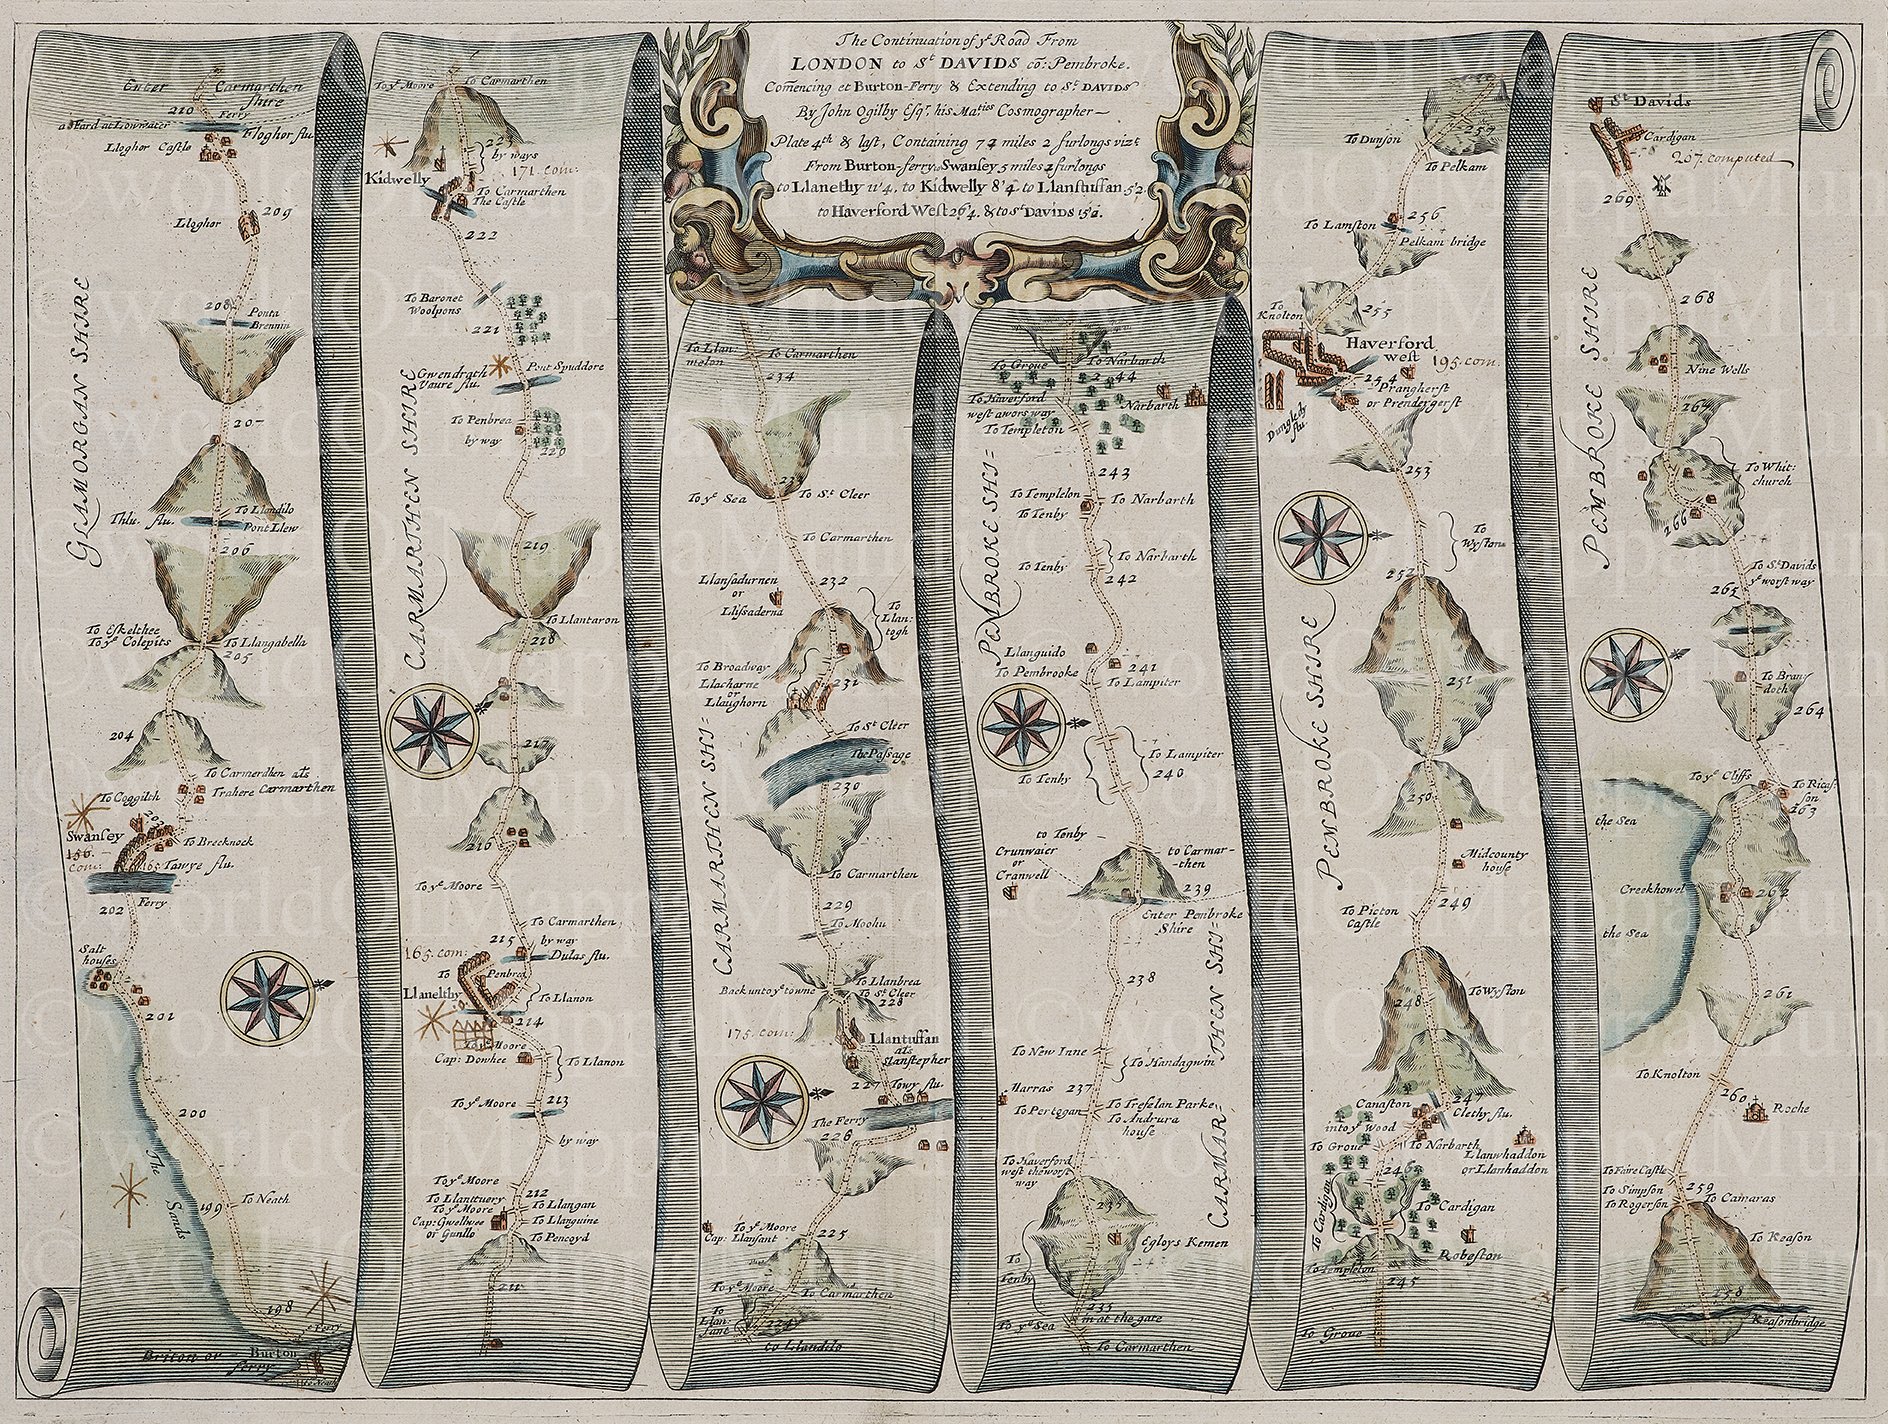 The Continuation of yᵉ Road From
LONDON to Sᵗ DAVIDS co: Pembroke.
Comencing at Burton-Ferry & Extending to Sᵗ DAVIDS
By John Ogilby Esqʳ. his Maᵗⁱᵉˢ Cosmographer
Plate 4ᵗʰ & last, Containing 74 miles 2 furlongs vizᵗ
From Burton-ferry to Swansey 5 miles 2 furlongs
to Llanelthy 11'4. to Kidwelly 8'4 to Llanstuffan 5'2.
to Haverford West 26'4. & to Sᵗ DAVIDS 15'2.
Enter Carmarthen
shire
210
Ferry
Loghor flu.
a Fard at Lowwater
Lloghor Castle
209
Lloghor
GLAMORGAN SHIRE
208
Ponta
Brennin
207
To Llandilo
Thlu. flu.
Pont Llew
206
To Eskelthee
To yᵉ Colepits
To Llangabella
205
204
To Carmerdhen als
Trahere Carmarthen
To Coggilth
203
Swansey
156.
com:
To Brecknock
Tawye flu.
202
Ferry
Salt
houses
201
200
The Sands
199
To Neath
198
Briton or
Burton
ferry
To Neath
To yᵉ Moore
To Carmarthen
223
by ways
171. com:
Kidwelly
To Carmarthen
The Castle
222
To Baronet
Woolpons
221
Gwendrath
Vaure flu.
Pont Spuddore
To Penbrea
by way
220
CARMARTHEN SHIRE
219
To Llantaron
218
217
216
To yᵉ Moore
To Carmarthen
215
by way
Dulas flu.
165. com:
To
Penbrea
Llanelthy
To Llanon
214
To yᵉ Moore
Cap: Dowhee
To Llanon
To yᵉ Moore
213
by way
To yᵉ Moore
212
To Llanttuery
To Llangan
To yᵉ Moore
Cap: Gwellwee
or Gunllo
To Llanguine
To Pencoyd
211
To Llan-
melon
To Carmarthen
234
233
To yᵉ Sea
To Sᵗ Cleer
To Carmarthen
232
Llansadurnen
or
Llysaderna
To
Llan-
togh
To Broadway
231
Llacharne
or
Llaughorn
To Sᵗ Cleer
The Passage
230
CARMARTHEN SHI=
To Carmarthen
229
To Moohu
Back unto yᵉ towne
To Llanbrea
To Sᵗ Cleer
228
175. com:
Llantuffan
als
Llanstepher
227
Towy flu.
The Ferry
226
To yᵉ Moore
Cap: Llansant
225
To yᵉ Moore
To Carmarthen
To
Llan-
sant
224
to Llandilo
To Grove
To Narbarth
244
To Haverford
west a wors way
Narbarth
To Templeton
243
To Templeton
To Narbarth
To Tenby
To Tenby
To Narbarth
242
PEMBROKE SHI=
Llanguido
To Pembrooke
241
To Lampiter
To Lampiter
240
To Tenby
to Tenby
Crunwaier
or
Cranwell
to Carmar-
-then
239
Enter Pembroke
Shire
238
To New Inne
To Handagwin
Marras
237
To Pertegan
To Trefelan Parke
To Andrura
house
To Haverford
west the worst
way
236
CARMAR-THEN SHI=
To
Tenby
Egloys Kemen
235
in at the gate
To yᵉ Sea
To Carmarthen
To Dunson
257
To Pelkam
256
To Lamston
Pelkam bridge
To
Knolton
255
Haverford
west
195. com:
254
Prangherst
or Prendergest
Dungledy
flu.
253
To
Wyston
252
251
PEMBROKE SHIRE
250
Midcounty
house
249
To Picton
Castle
248
To Wyston
247
Canaston
into yᵉ Wood
Clethy flu.
To Grove
To Narbarth
Llanwhaddon
or Llanhaddon
246
To Cardigan
To Cardigan
Robeston
To Templeton
245
To Grove
Sᵗ Davids
Cardigan
207. computed
269
268
Nine Wells
267
PEMBROKE SHIRE
To Whit:
church
266
To Sᵗ Davids
yᵉ worst way
265
To Bran-
doth
264
To yᵉ Cliffs
To Ricas-
son
263
the Sea
Creekhowel
262
the Sea
261
To Knolton
260
Roche
To Faire Castle
To Simpson
To Rogerson
259
To Camaras
To Keason
258
Keasonbridge